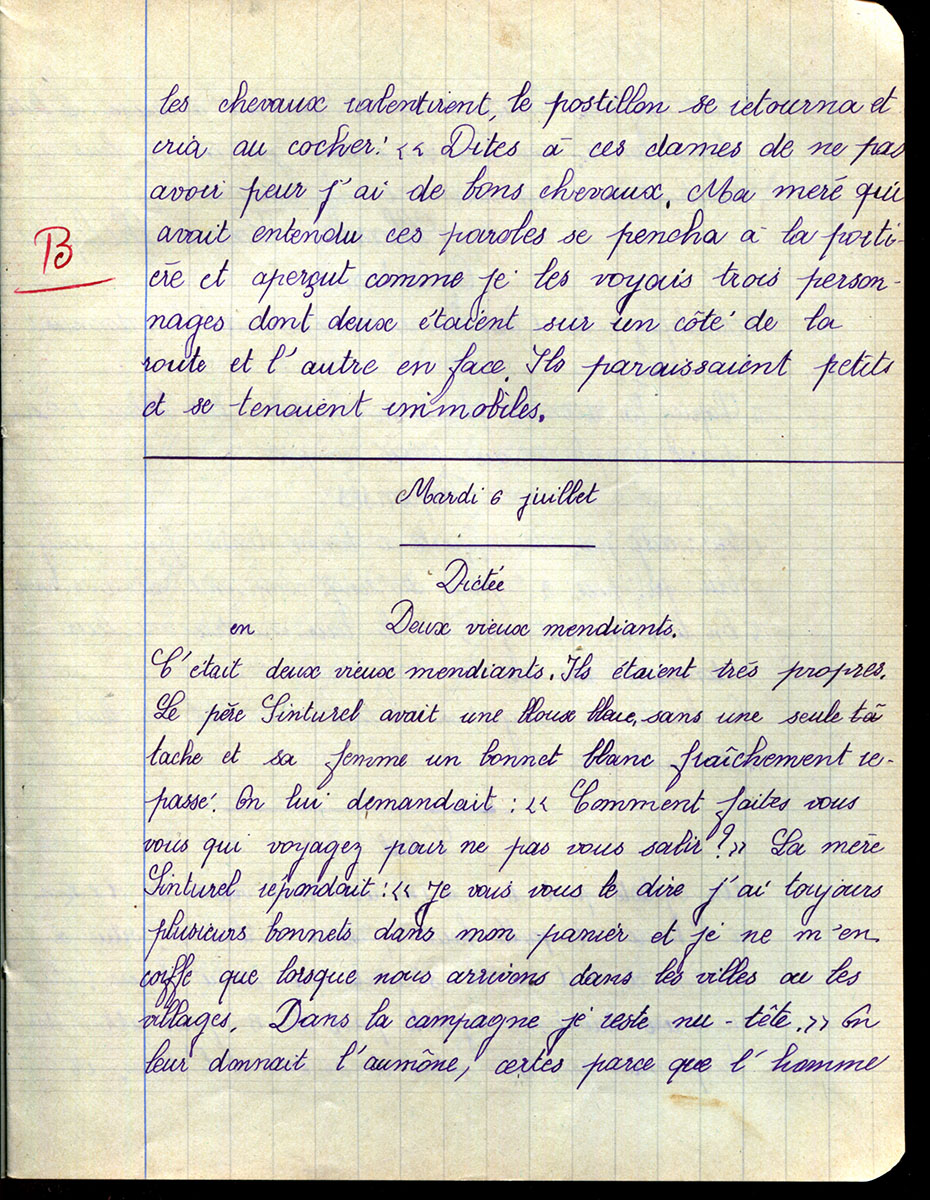 les chevaux ralentirent, le postillon se retourna et
cria au cocher: << Dites à ces dames de ne pas
avoir peur j'ai de bons chevaux. Ma meré qui
avait entendu ces paroles se pencha à la porti-
B
ère et aperçut comme je les voyais trois person-
nages dont deux étaient sur un côté de la
route et l'autre en face. Ils paraissaient petits
et se tenaient immobiles.
Mardi 6 juillet
Dictée
en Deux vieux mendiants.
C'était deux vieux mendiants. Ils étaient trés propres.
Le père Sinturel avait une blouse bleue, sans une seule tâ
tache et sa femme un bonnet blanc fraîchement re-
passé. On lui demandait : << Comment faites vous
vous qui voyagez pour ne pas vous salir ? >> La mère
Sinturel repondait : << Je vais vous le dire j'ai toujours
plusieurs bonnets dans mon panier et je ne m'en
coiffe que lorsque nous arrivons dans les villes ou les
villages. Dans la campagne je reste nu - tête. >> On
leur donnait l'aumône, certes parce que l'homme